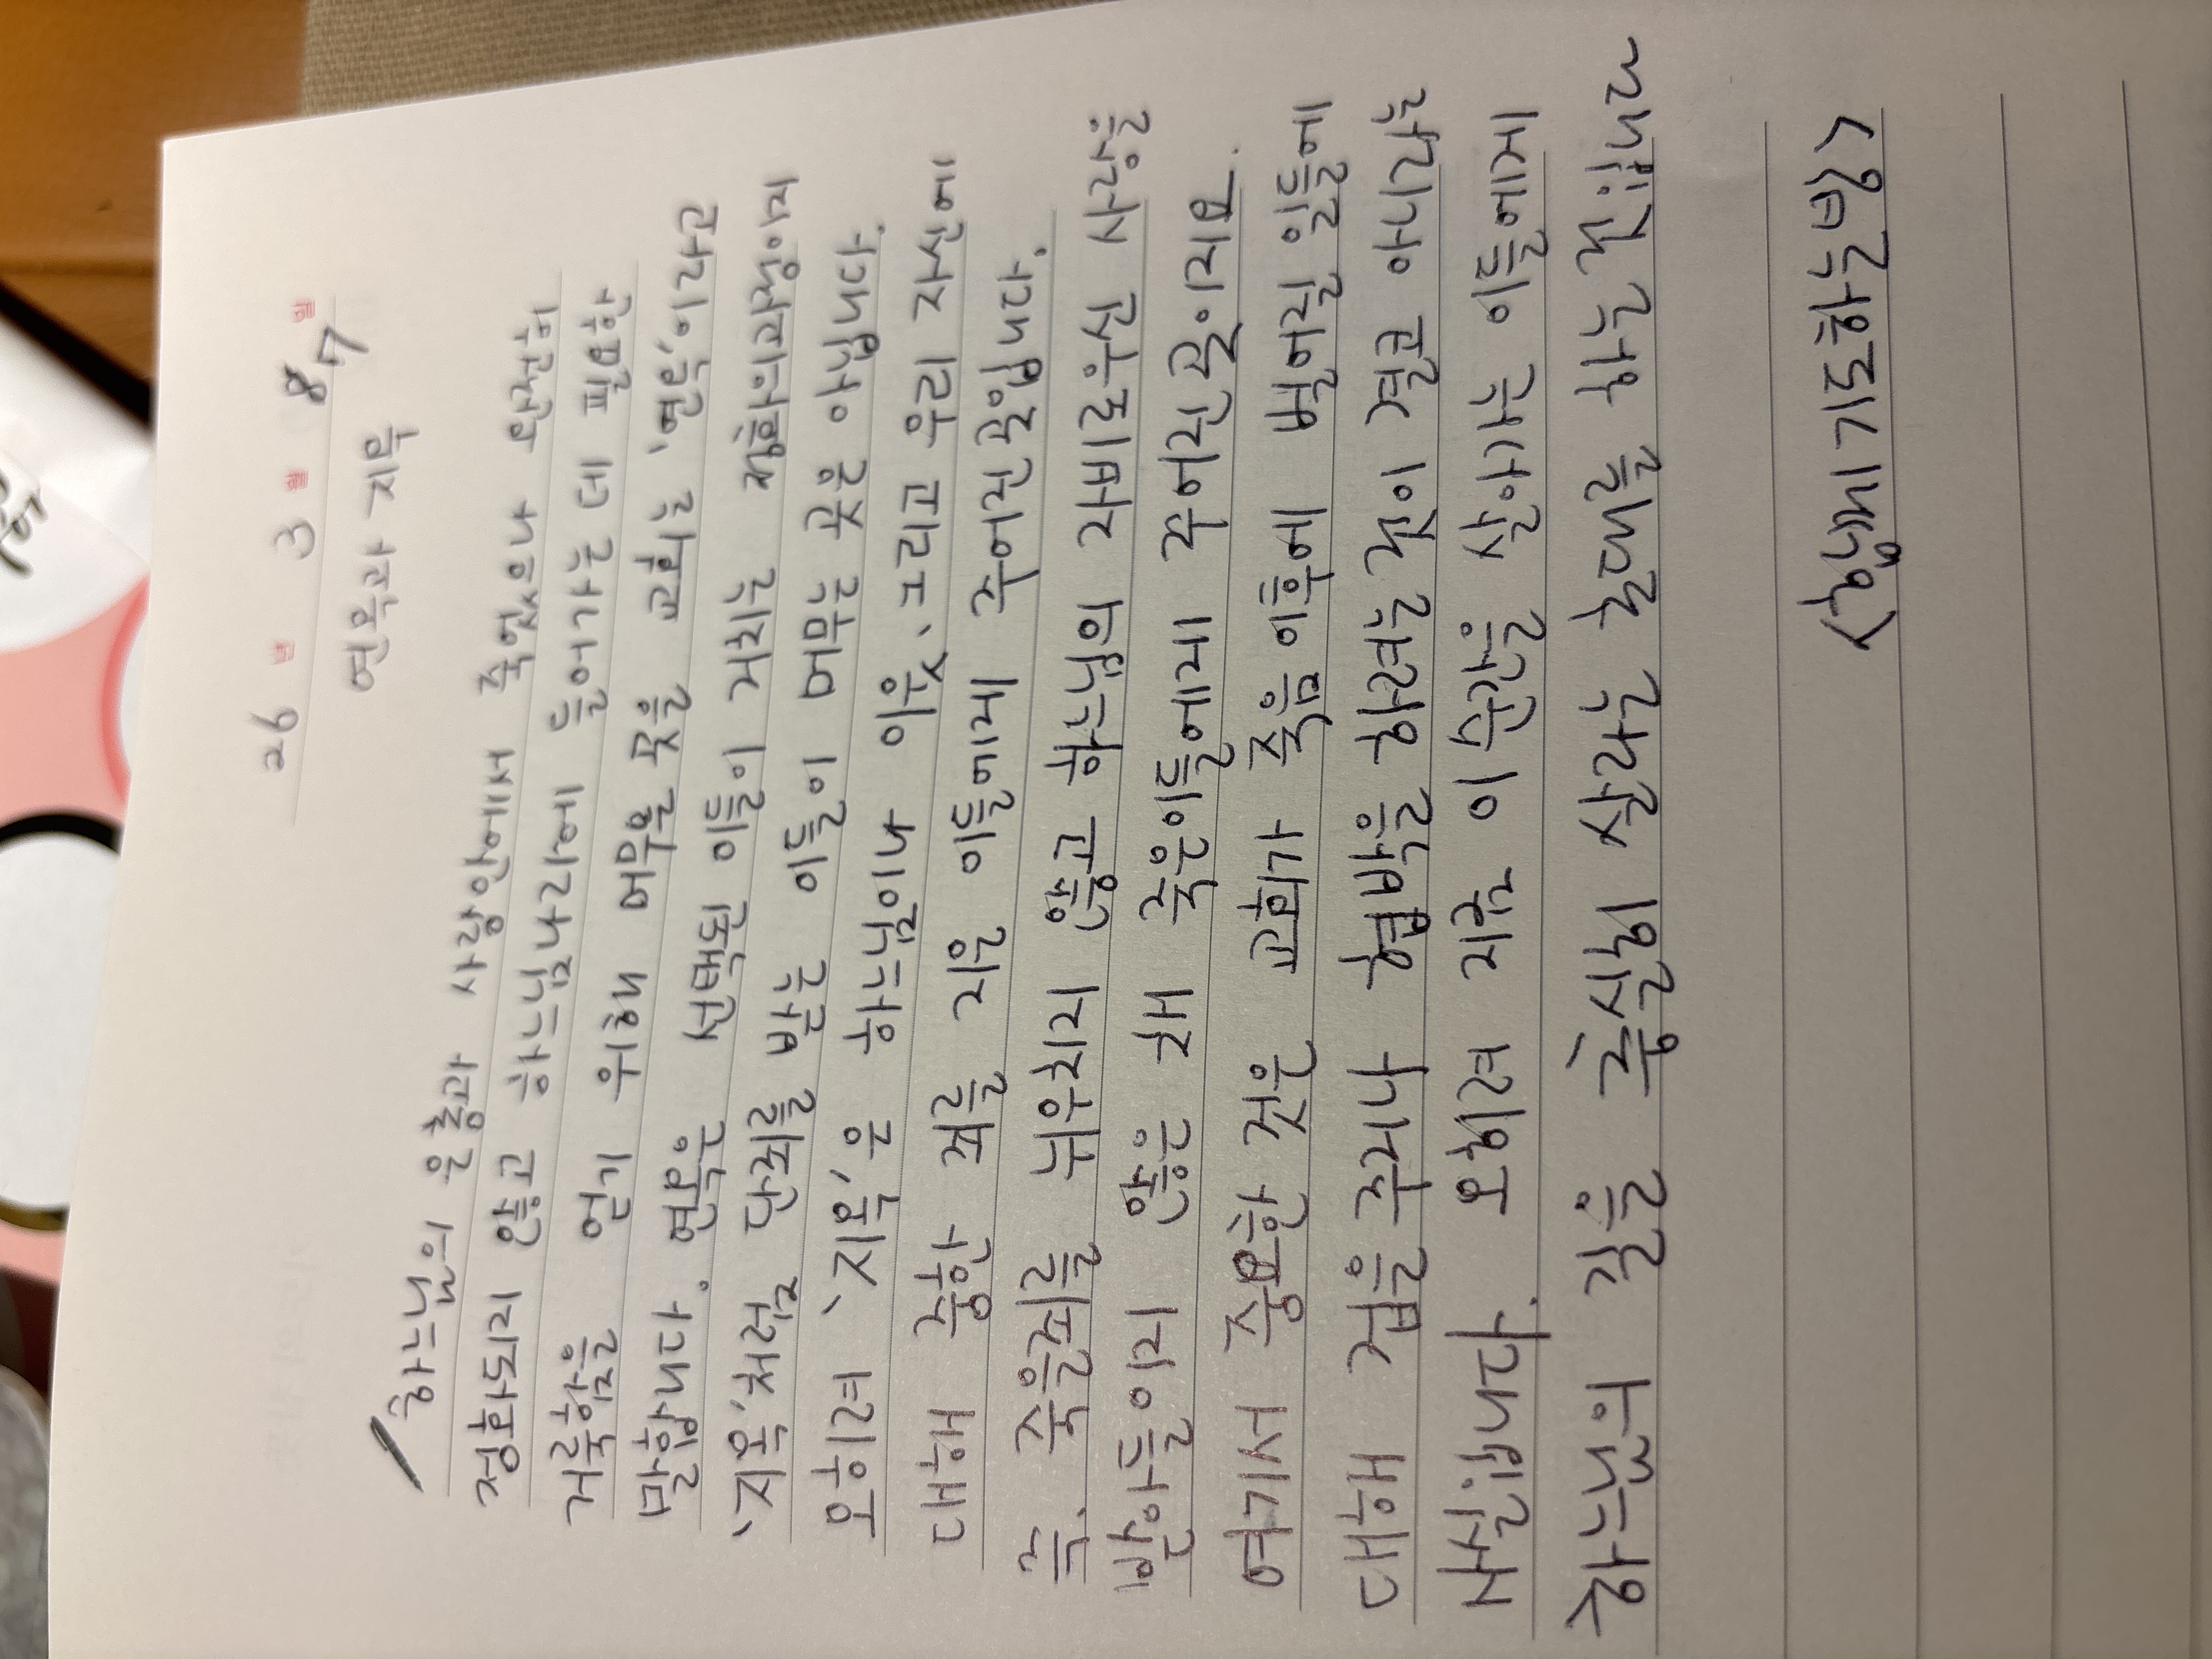 26 년 3 월 8 일
7
연옥과 지옥
하느님의 은총과 사랑안에서 죽었으나 완전히
정화되지 않고 하느님나라에 들어가는 데 필요한
거룩함을 얻기 위해 머무를 곳을 교회는 '연옥'이라고
말합니다. 연옥은 선택된 이들이 거치는 정화의과정이지
'지옥'처럼 단죄를 받는 이들이 머무는 곳은 아닙니다.
오히려 '지옥'은 하느님이나 이웃, 그리고 우리 자신에
대해 중한 죄를 지은 이들에게 주어진 곳입니다.
즉. 죽을죄를 뉘우치지 않고 하느님의 자비로우신 사랑을
받아들이지 않은 채 죽은이들에게 주어진 곳이지요.
여기서 중요한 것은 교회가 죽음 이후에 벌어질 일들에
대해 겁을 주거나 협박을 하려는 것이 결코 아니라는
사실입니다. 오히려 지금 이 순간을 살아가는 이들에게
하느님의 길을 충실히 살라는 초대를 하는 것입니다
<함께기도하는밤>